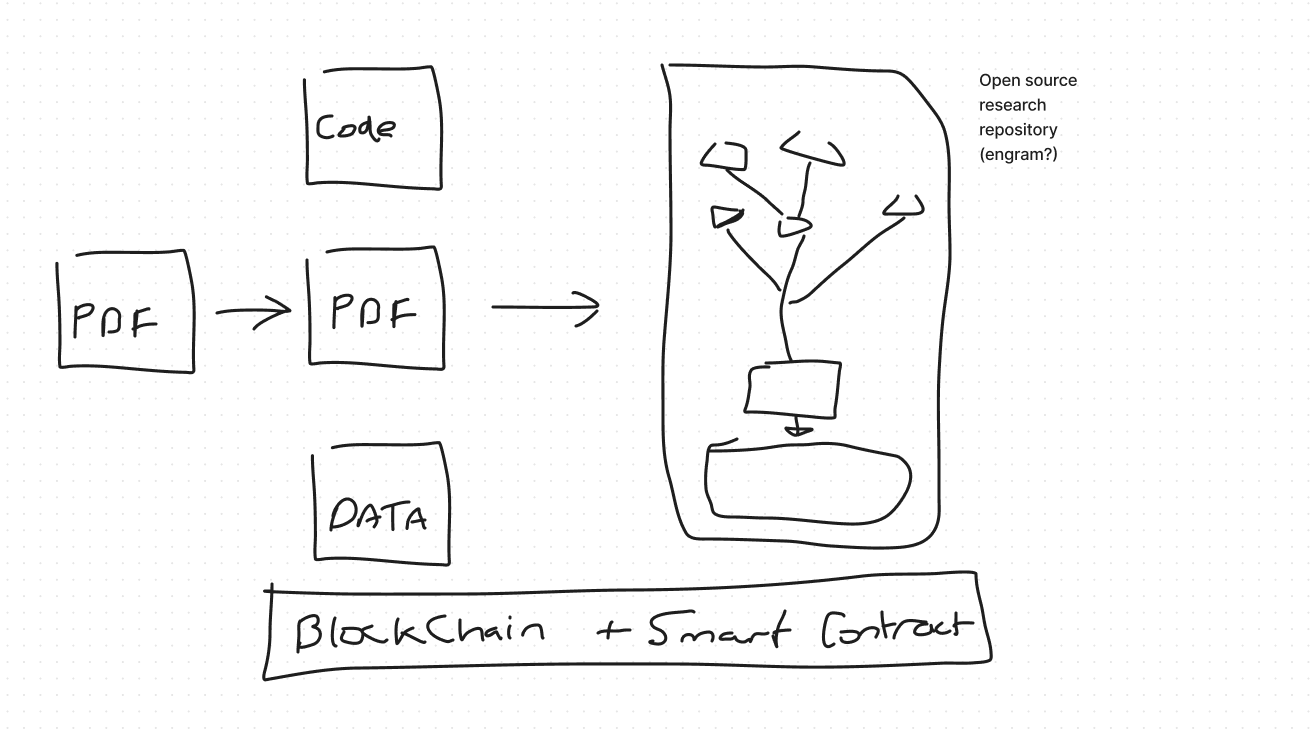 Code
PDF
PDF
DATA
Open source
research
repository
(engram?)
BlockChain + Smart Contract